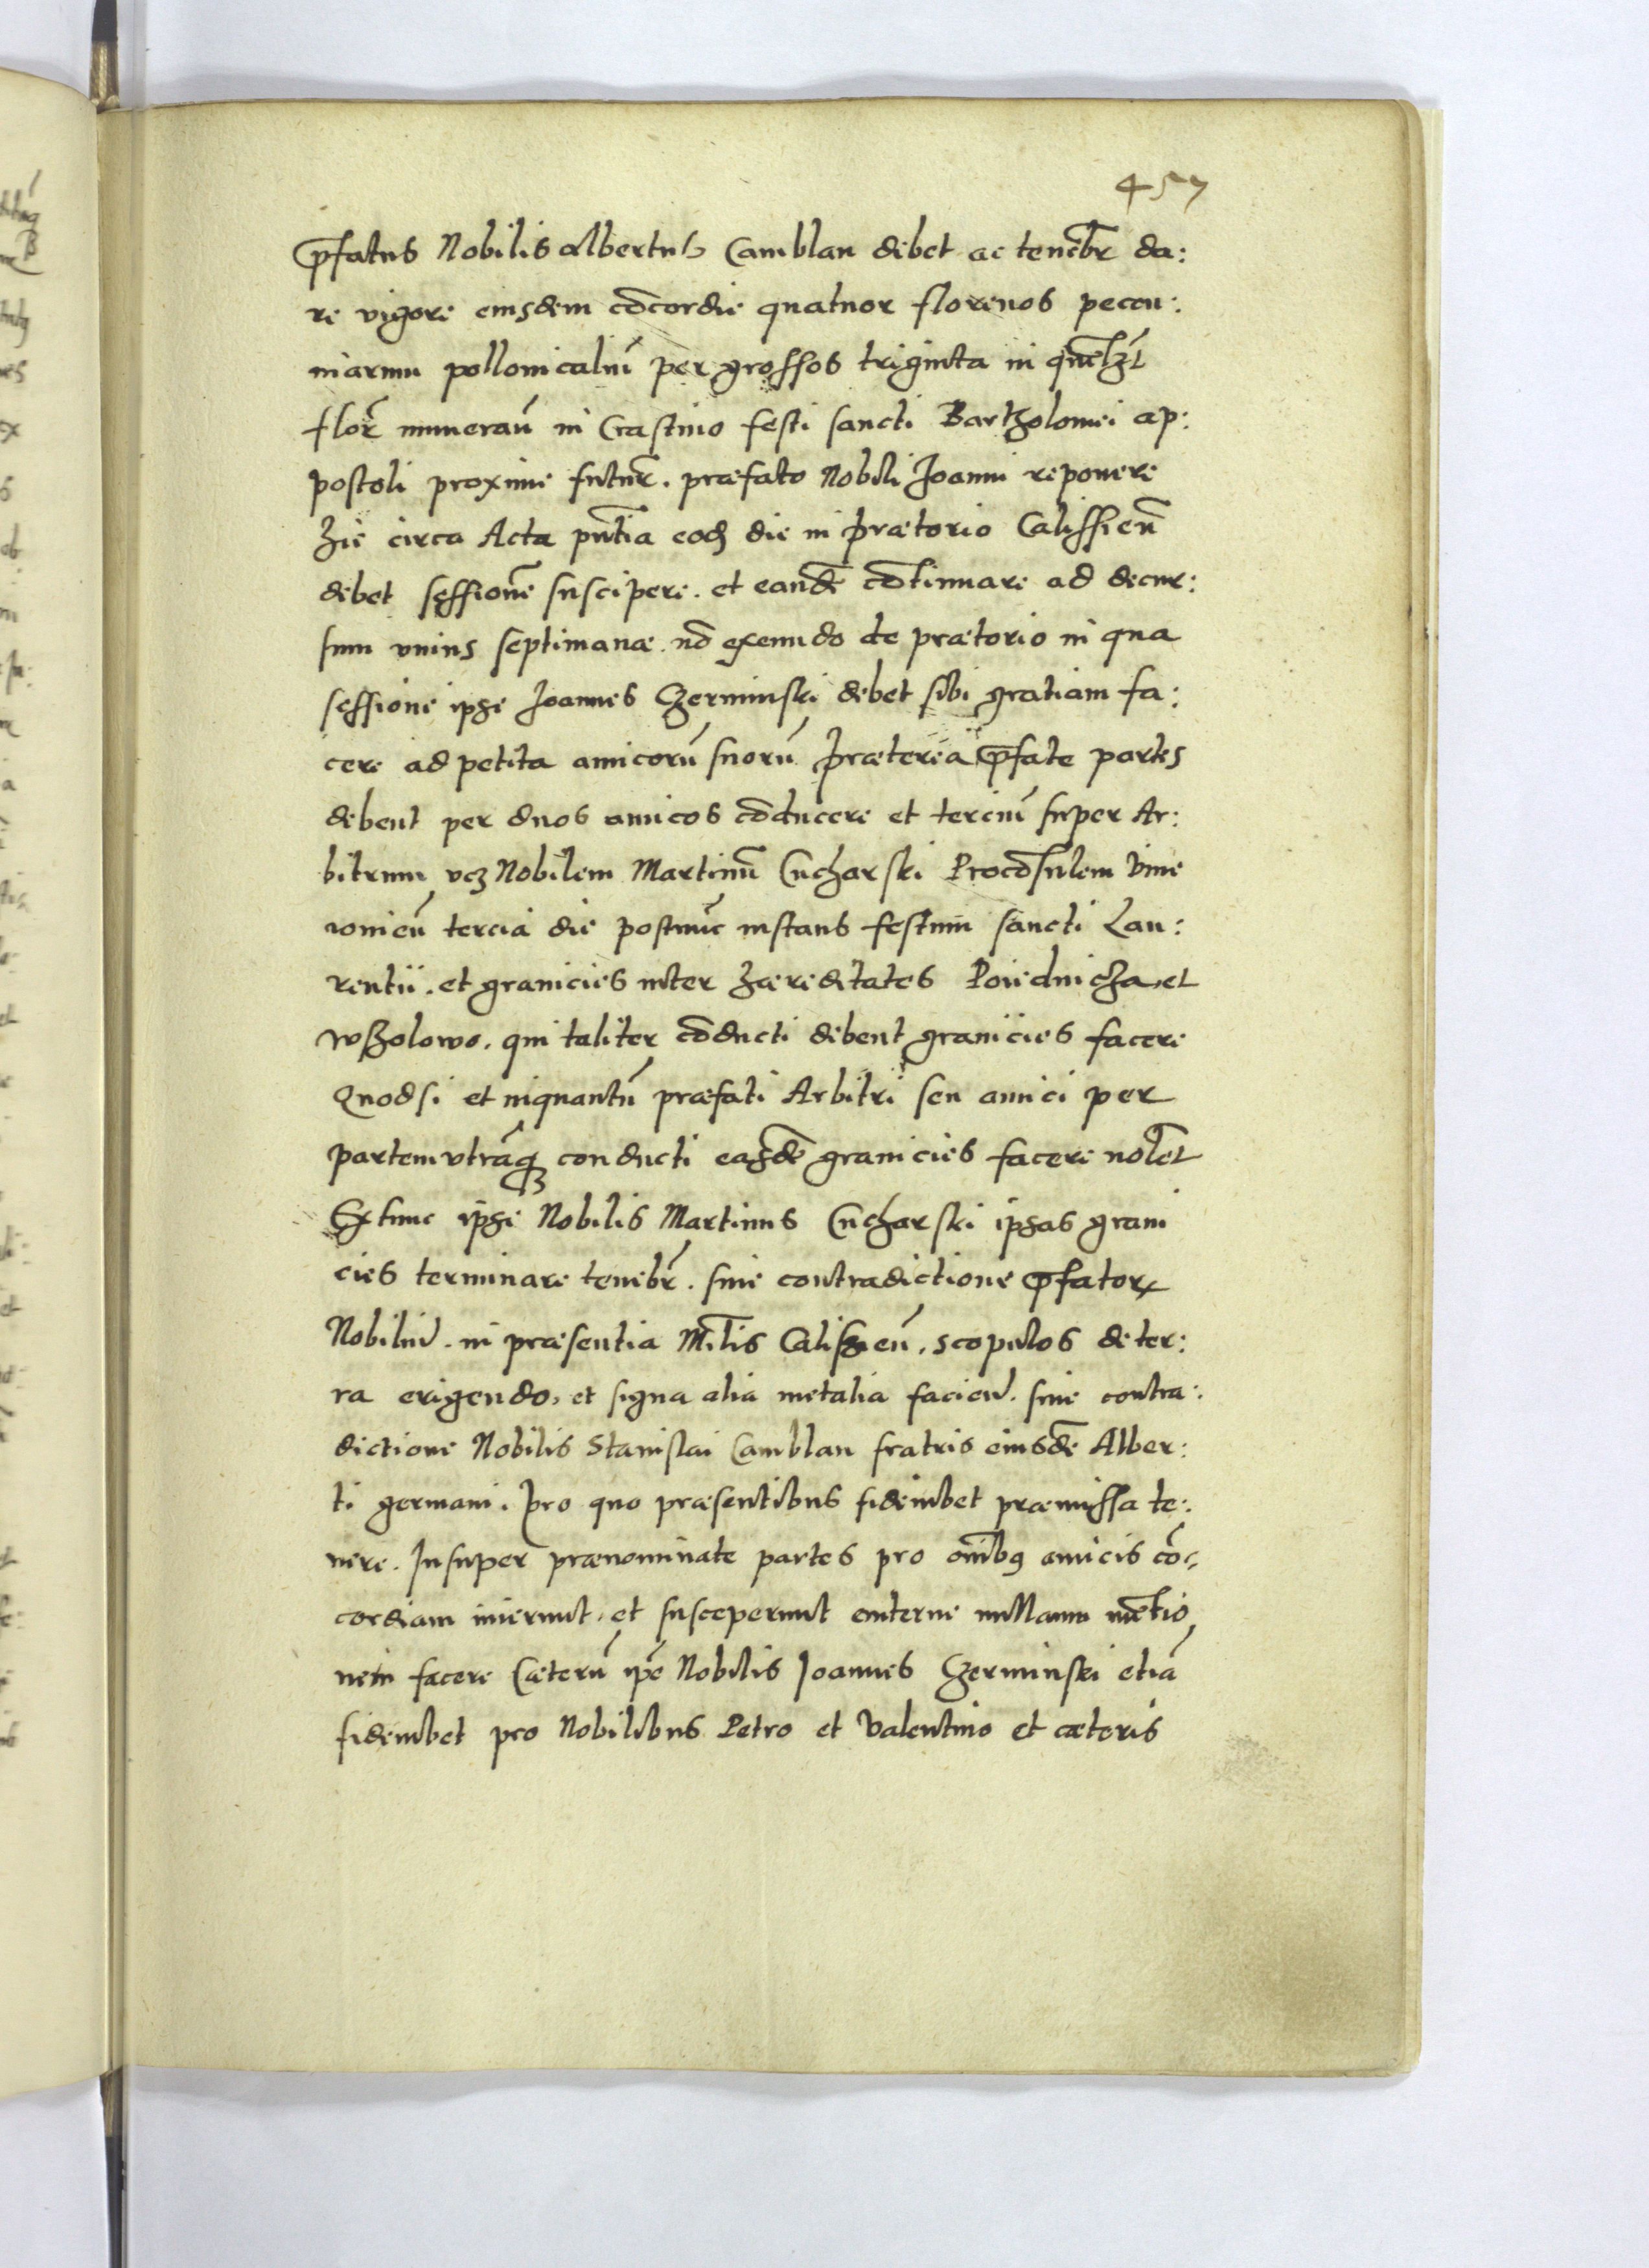 457
p̄fatus Nobilis Albertus Camblan debet ac tenebr̄ da:
re vigore eiusdem cōcordie quatuor florenos pecun:
niarum pollonicaliū per grossos triginta in quēlȝt
flor̄ numeraū in Crastino festi sancti Bartholomei ap:
postoli proxime futur̄. præfato Nobili Joanni reponere
hic circa Acta pn̄tia eodȝ die in prætorio Calissień
debet sessionē suscipere. et eandē cōtinuare ad decur:
sum vnius septimanæ. nō exeundo de prætorio in qua
sessione ipse Joannes Czerminski debet sibi gratiam fa:
cere ad petita amicorū suorū Præterea p̄fate partes
debent per duos amicos cōducere et terciū super Ar:
bitrum vcȝ Nobilem Martinū Cucharski Procōsulem Vine
wonień tercia die postnūc instans festum sancti Lau:
rentii. et granicies inter hæreditates Poiednicza et
wszolowo. qui taliter cōducti debent granicies facere
Quodsi et inquantū præfati Arbitri seu amici per
partem vtrāqȝ conducti easdē granicies facere nolēt
Extunc ipse Nobilis Martinus Cucharski ipsas grani
cies terminare tenebr̄. sine contradictione p̄fatorꝝ
Nobiliū. in præsentia Mil̄tis Caliszień. scopulos de ter:
ra erigendo, et signa alia metalia facień. sine contra:
dictione Nobilis Stanislai Camblan fratris eiusdē Alber:
ti germani. pro quo præsentibus fideiubet præmissa te:
nere. Insuper prænominate partes pro om̄ibꝰ amicis cōc,
cordiam inierunt, et susceperunt eviterne nullamm mētio
nem facere Cæterū ip̄e Nobilis Joannes Czerminski etiā
fideiubet pro Nobilibus Petro et Valentino et cæteris